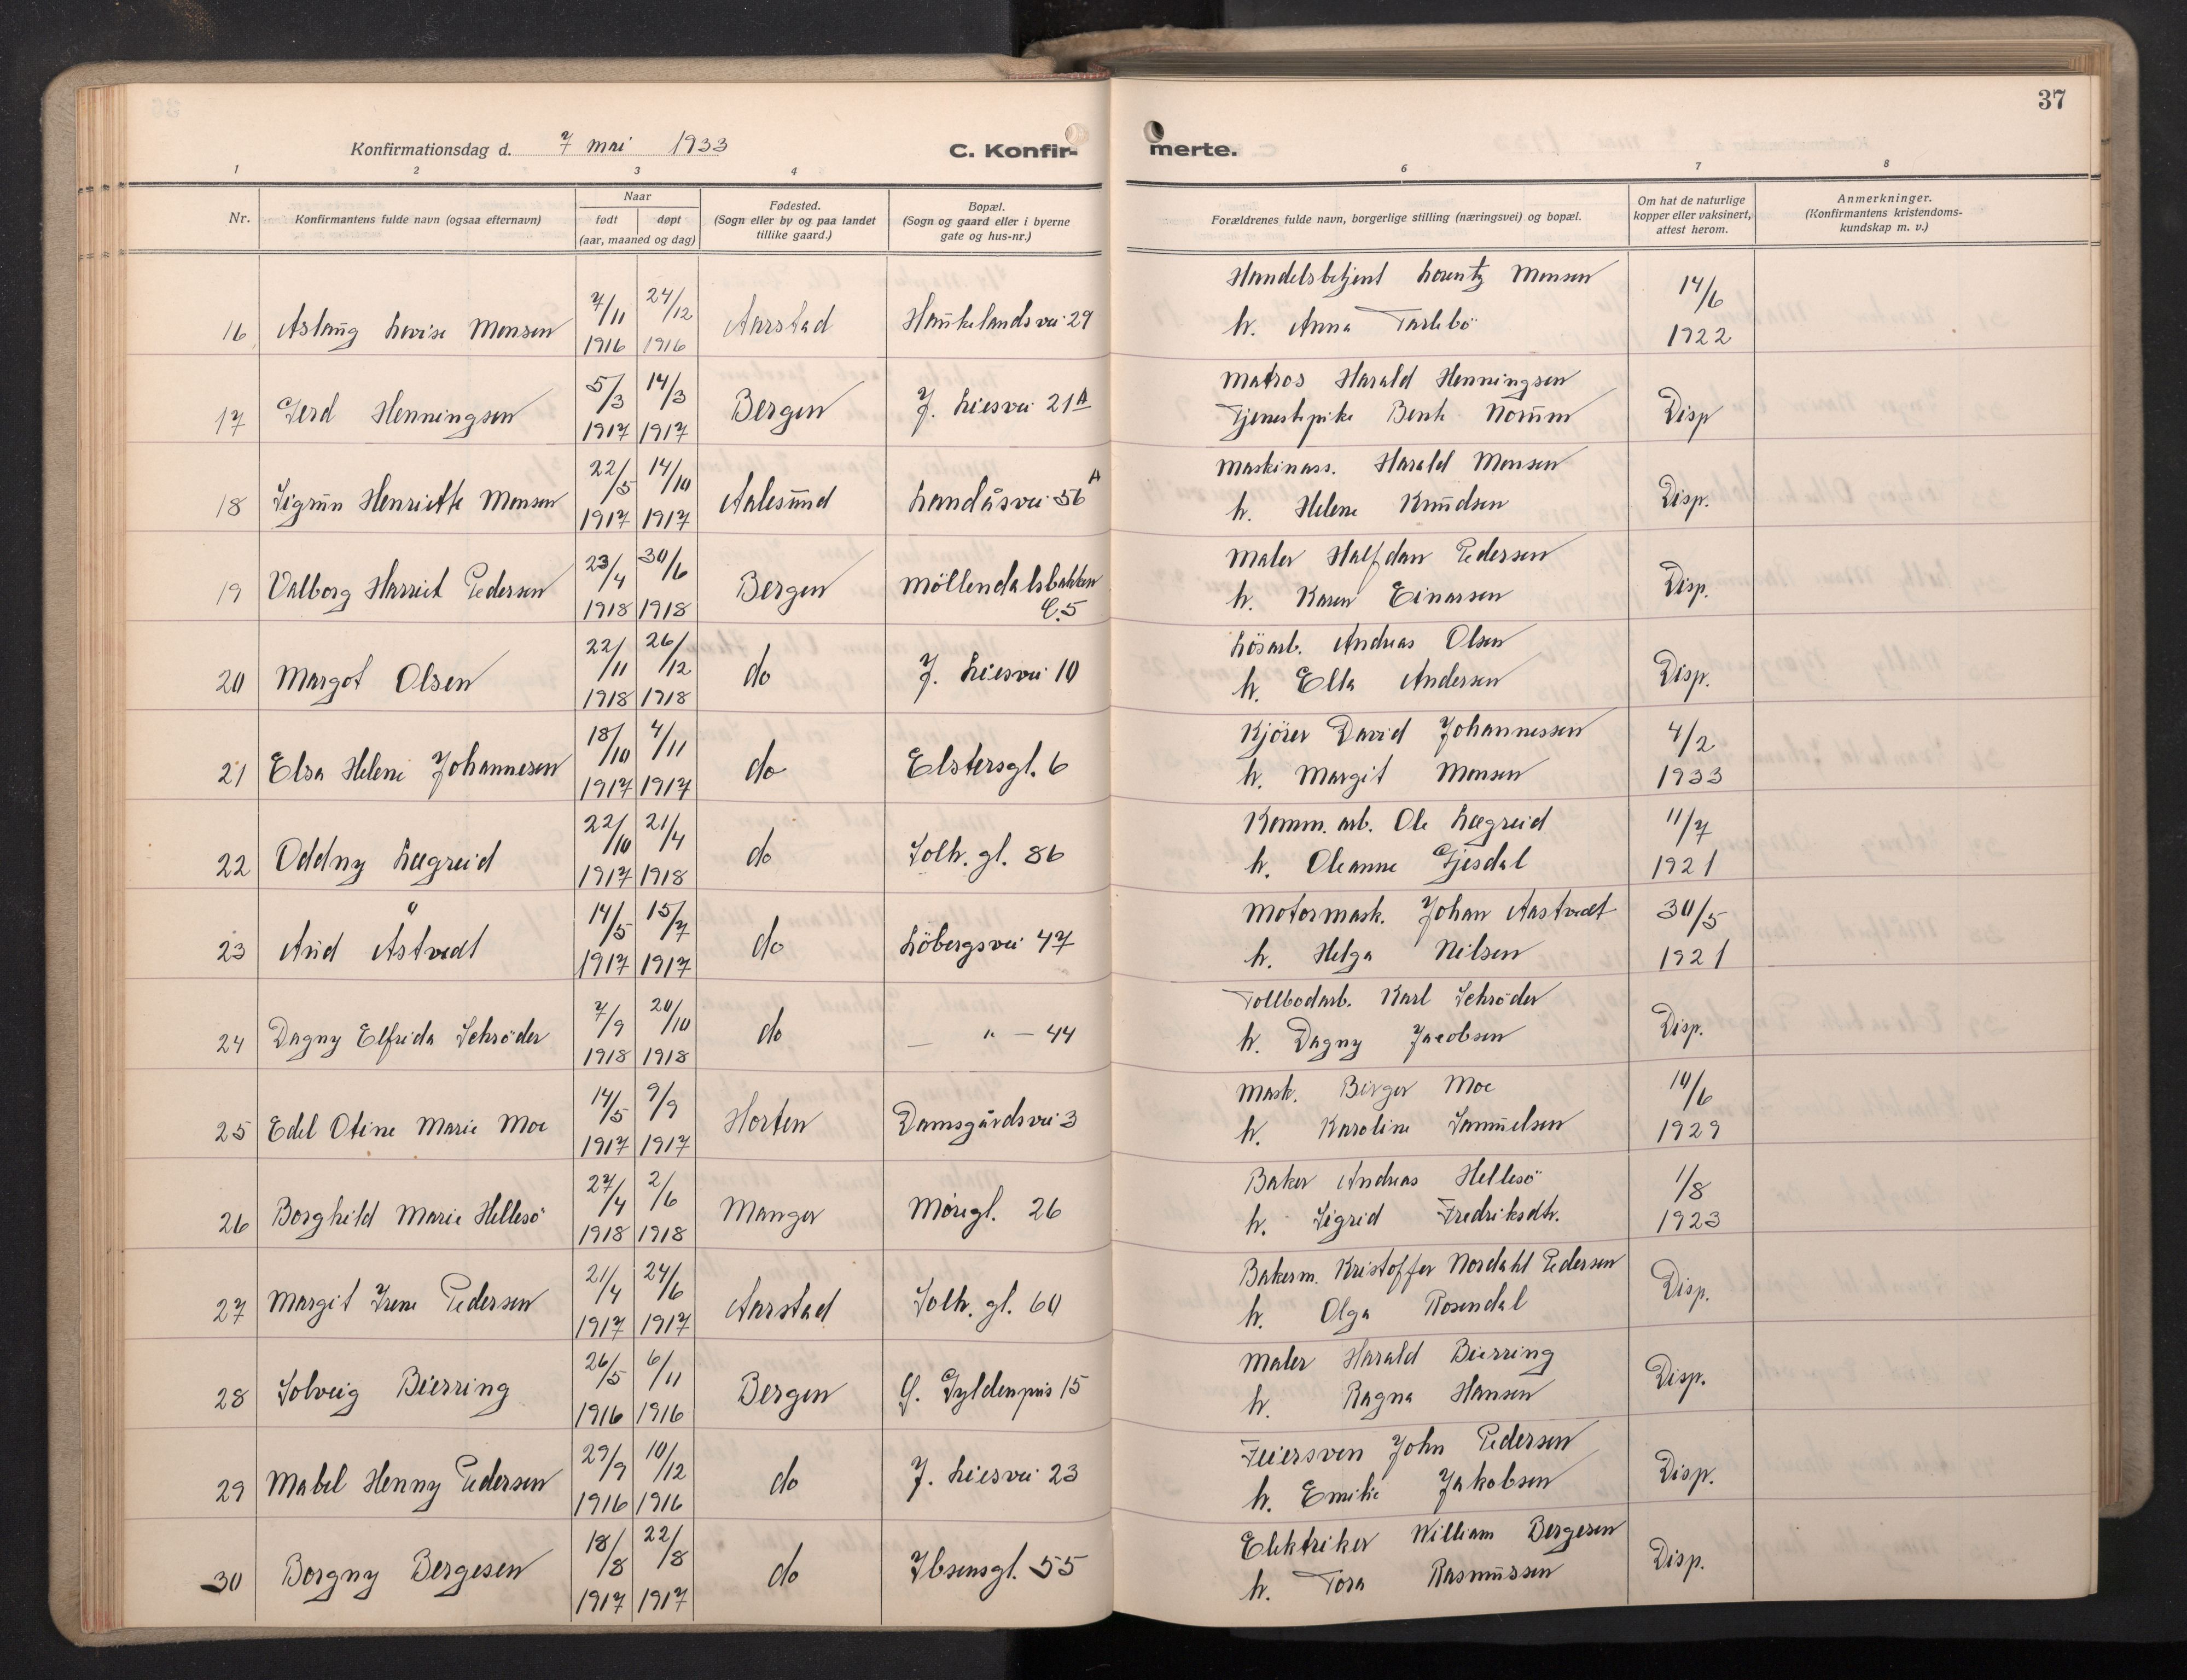 37
Konfirmationsdag d. 7 mai 1933
C. Konfir-
merte.
1 2 3 4 6 7 8
Nr.
Konfirmantens fulde navn (ogsaa efternavn)
Naar
født døpt
(aar, maaned og dag)
Fødested.
(Sogn eller by og paa landet
tillike gaard.)
Bopæl.
(Sogn og gaard eller i byerne
gate og hus-nr.)
Forældrenes fulde navn, borgerlige stilling (næringsvei) og bopæl.
Om hat de naturlige
kopper eller vaksinert,
attest herom.
Anmerkninger.
(Konfirmantens kristendoms-
kundskap m. v.)
7/11 24/12 Handelsbetjent Lorentz Monsen 14/6
16 Aslaug Lovise Monsen 1916 1916 Aarstad Haukelandsvei 29 h. Anna Tarlebö 1922
5/3 14/3 Matros Harald Henningsen
17 Gerd Henningsen 1917 1917 Bergen J. Liesvei 21A Tjenestepike Bente Norum Disp
22/5 14/10 Maskinass. Harald Monsen
18 Sigrun Henriette Monsen 1917 1917 Aalesund Landåsvei 56A h. Helene Knudsen Disp.
23/4 30/6 Maler Halfdan Pedersen
19 Valborg Harriet Pedersen 1918 1918 Bergen Möllendalsbakken h. Karen Einarsen Disp.
C.5
22/11 26/12 Lösarb. Andreas Olsen
20 Margot Olsen 1918 1918 do J. Liesvei 10 h. Ella Andersen Disp.
18/10 4/11 Kjörer David Johannessen 4/2
21 Elsa Helene Johannesen 1917 1917 do Elstersgt. 6 h. Margit Monsen 1933
22/10 21/4 Komm. arb. Ole Lægreid 11/7
22 Oddny Lægreid 1917 1918 do Solh. gt. 86 h. Oleanne Gjesdal 1921
14/5 15/7 Motormask. Johan Aastvedt 30/5
23 Aud Åstvedt 1917 1917 do Löbergsvei 47 h. Helga Nilsen 1921
7/9 20/10 Tollbodarb. Karl Schröder
24 Dagny Elfrida Schröder 1918 1918 do — " — 44 h. Dagny Jacobsen Disp.
14/5 9/9 Mask. Birger Moe 10/6
25 Edel Otine Marie Moe 1917 1917 Horten Damsgårdsvei 3 h. Karoline Samuelsen 1929
27/4 2/6 Baker Andreas Hellesö 1/8
26 Borghild Marie Hellesö 1918 1918 Manger Möregt. 26 h. Sigrid Fredriksdtr. 1923
21/4 24/6 Bakerm. Kristoffer Nordahl Pedersen
27 Margit Irene Pedersen 1917 1917 Aarstad Solh. gt. 60 h. Olga Rosendal Disp.
26/5 6/11 Maler Harald Bierring
28 Solveig Bierring 1916 1916 Bergen G. Gyldenpris 15 h. Ragna Hansen Disp.
29/9 10/12 Feiersven John Pedersen
29 Mabel Henny Pedersen 1916 1916 do J. Liesvei 23 h. Emilie Jakobsen Disp.
18/8 22/8 Elektriker William Bergesen
30 Borgny Bergesen 1917 1917 do Ibsensgt. 55 h. Tora Rasmussen Disp.